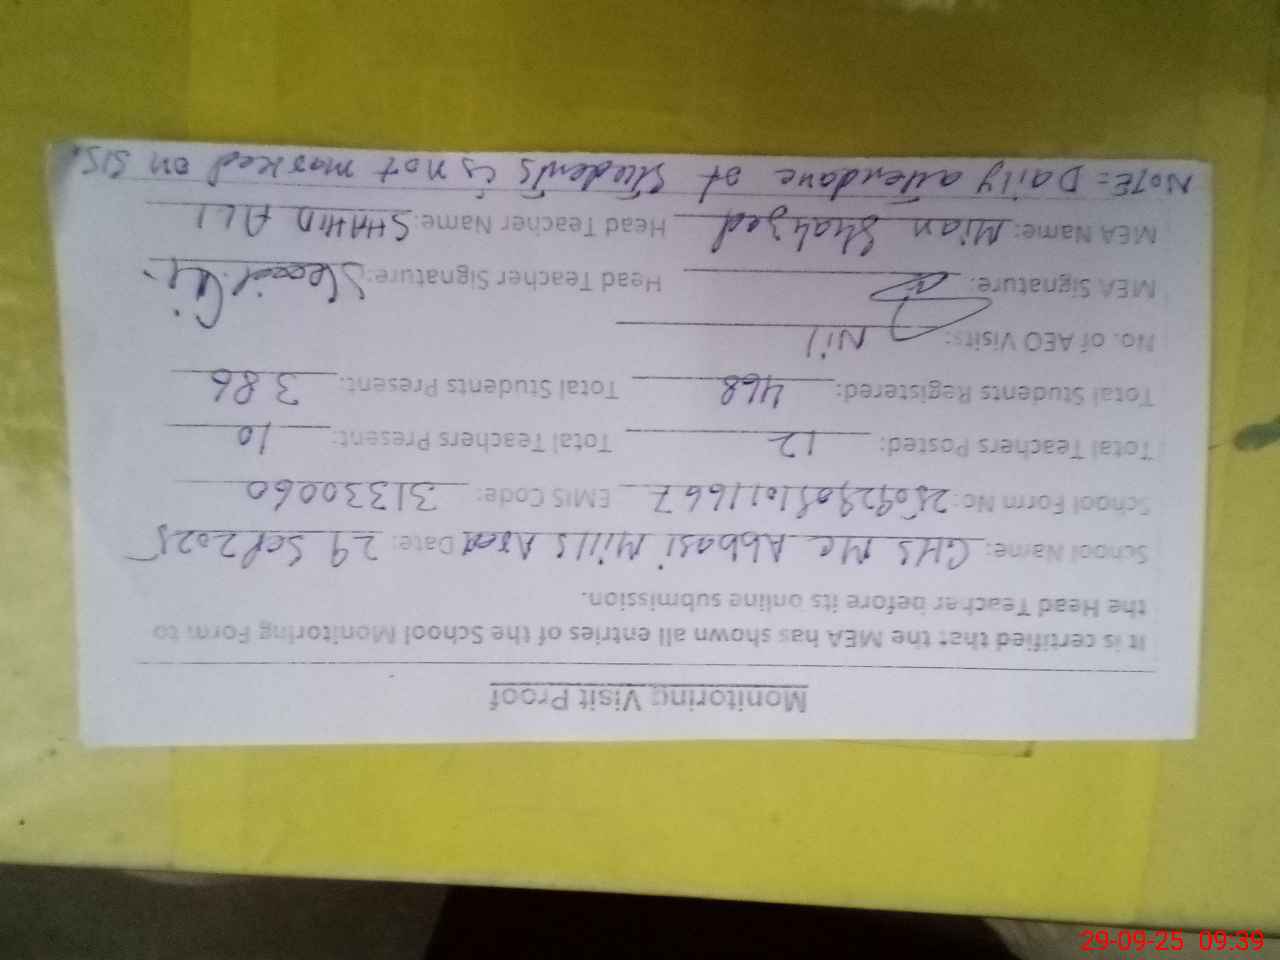 Monitoring Visit Proof
It is certified that the MEA has shown all entries of the School Monitoring Form to
the Head Teacher before its online submission.
School Name: GHS Mc Abbasi Mills Area Date: 29 Sep 2025
School Form No: EMIS Code: 31330060
Total Teachers Posted: 12 Total Teachers Present: 10
Total Students Registered: 468 Total Students Present: 386
No. of AEO Visits: Nil
MEA Signature: Head Teacher Signature:
MEA Name: Mian Shahzed Head Teacher Name: SHAHID ALI
NOTE= Daily attendane of Students is not marked on SIS.
29-09-25 09:39